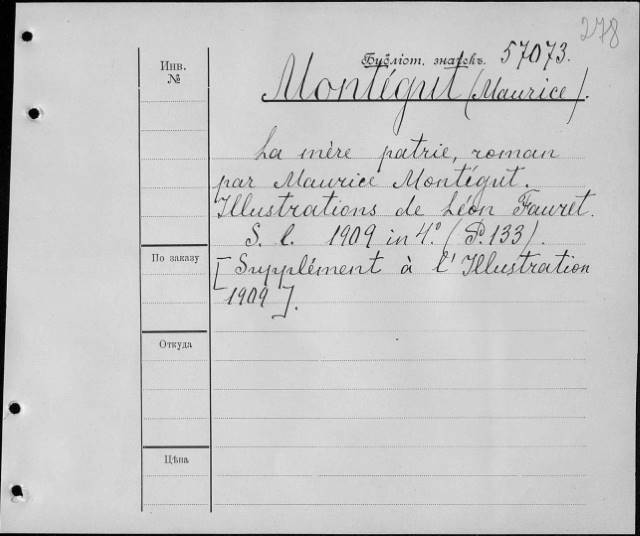 278
Инв. №
Библіот. значекъ. 57073.
Montégut (Maurice).
La mère patrie, roman
par Maurice Montégut.
Illustrations de Léon Fauret.
S. l. 1909 in 4°. (P. 133).
По заказу
[Supplément à l'Illustration
1909].
Откуда
Цѣна